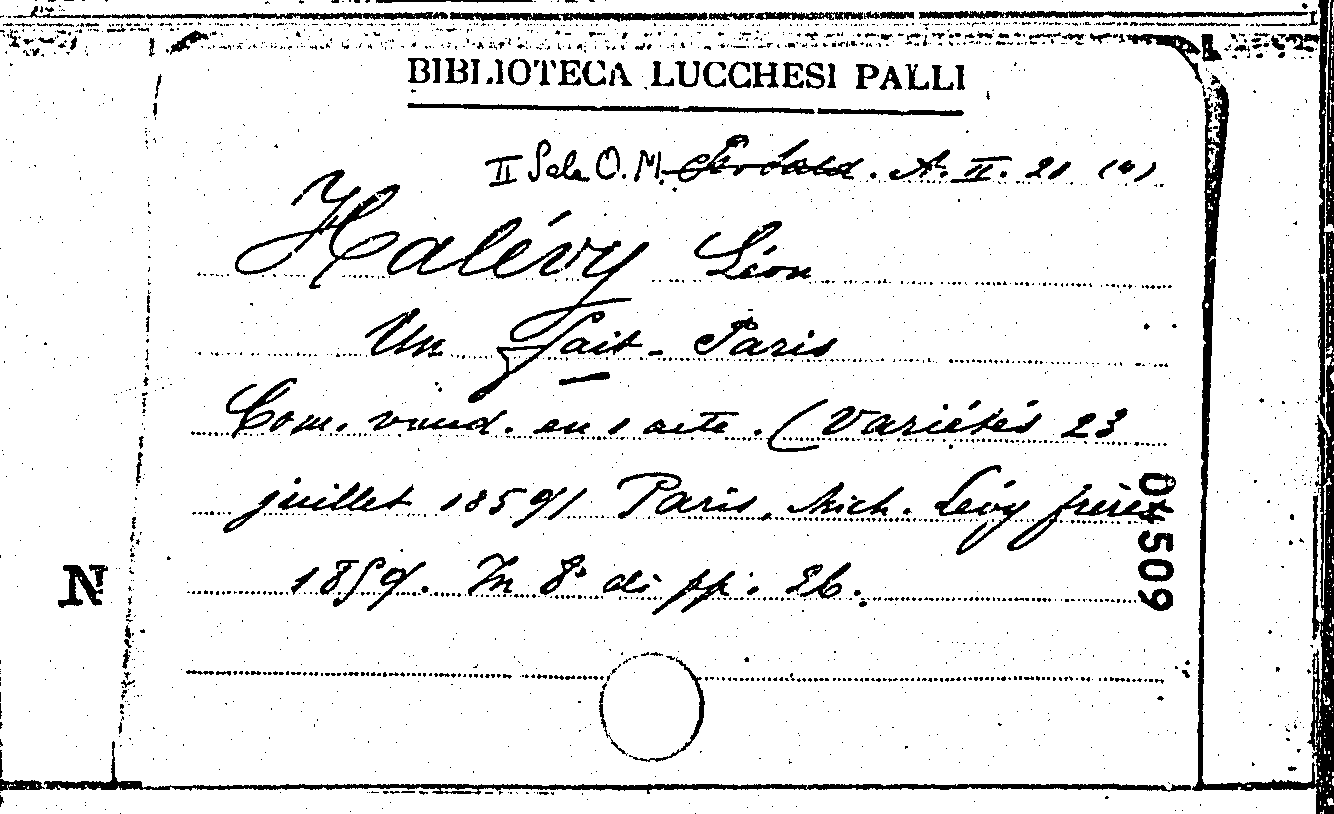 BIBLIOTECA LUCCHESI PALLI
II Sala O. M. A. II. 21 (4)
Halévy Léon
Un Fait-Paris
Com. vaud. en 1 acte. (Variétés 23
juillet 1859/ Paris, Mich. Lévy frères
1859. In 8° di pp. 26.
N
04509